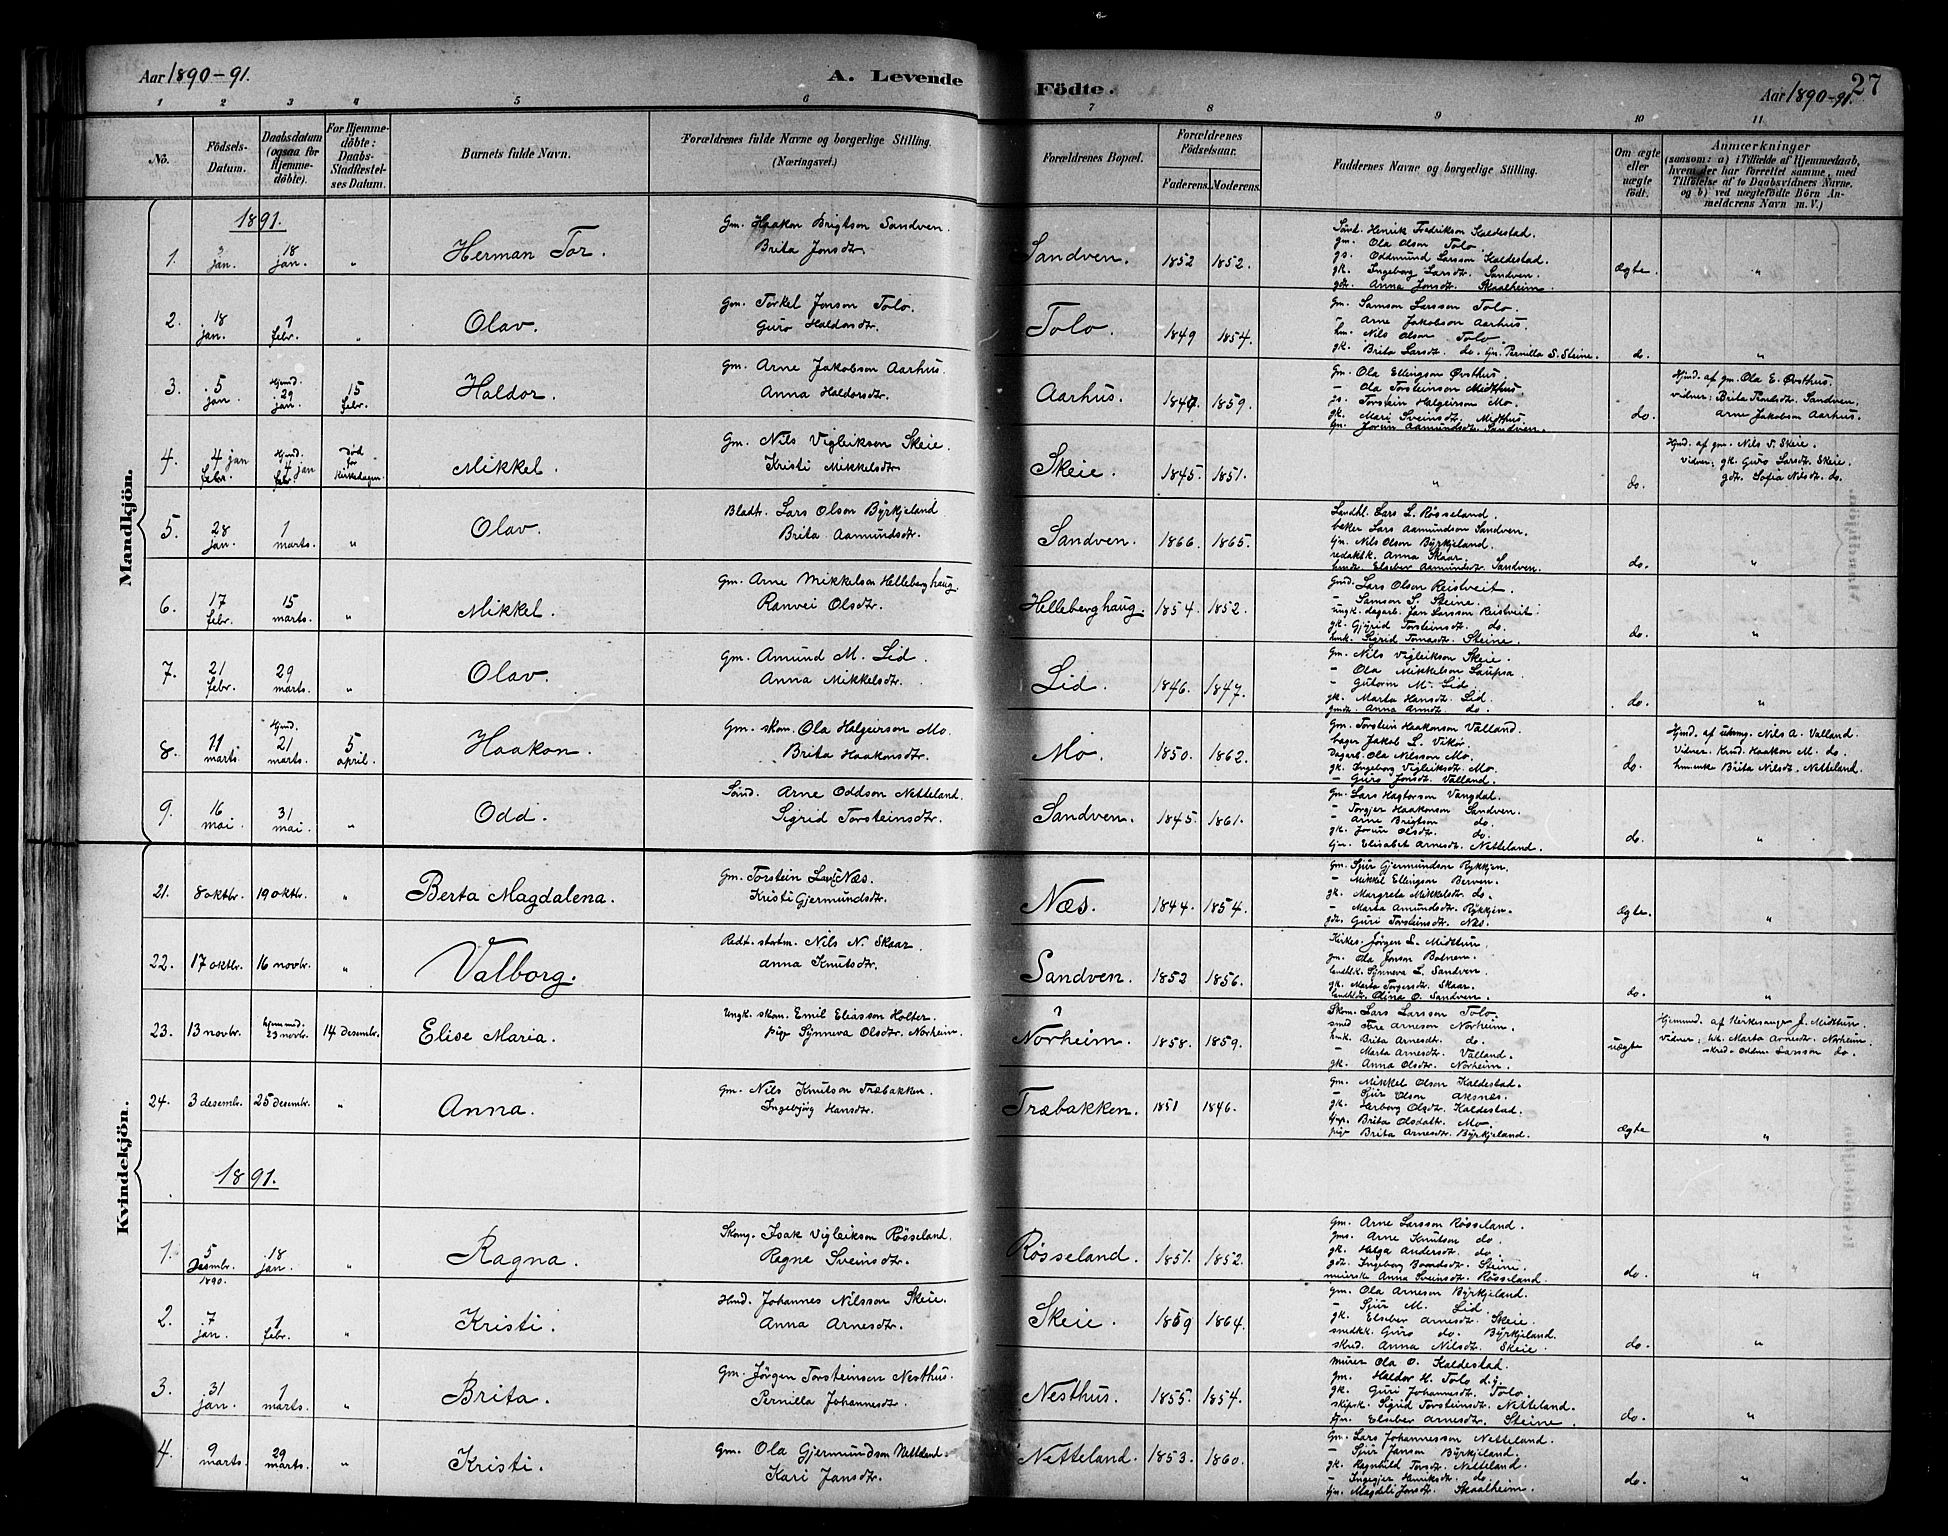 Aar 1890-91. A. Levende Födte. Aar 1890-91. 27
1 2 3 4 5 6 7 8 9 10 11
No. Födsels-Datum. Daabsdatum (ogsaa for Hjemme-döbte). For Hjemme-döbte: Daabs-Stadfæstelses Datum. Barnets fulde Navn. Forældrenes fulde Navne og borgerlige Stilling. (Næringsvei.) Forældrenes Bopæl. Forældrenes Födselsaar. Faderens. Moderens. Faddernes Navne og borgerlige Stilling. Om ægte eller uægte födt. Anmærkninger (saasom: a) i Tilfælde af Hjemmedaab, hvem der har forrettet samme, med Tilföielse af to Daabsvidners Navne. og b) ved uægtefödte Börn Anmelderens Navn m. V.)
Mandkjön.
1891.
1. 3 jan. 18 jan. " Herman Tor. Gm. Haakon Brigtson Sandven. Brita Jonsdtr. Sandven. 1852 1852.
Henrik Fredrikson Kaldestad.
gm. Ola Olson Tolo.
gs. Oddmund Larsson Kaldestad.
gk. Ingeborg Larsdt. Sandven.
gdt. Anna Jonsdt. Skaalheim.
ægte. "
2. 18 jan. 1 febr. " Olav. Gm. Torkel Jonson Tolo. Guro Haldorsdtr. Tolo. 1849 1854.
Gm. Samson Larsson Tolo.
- Arne Jakobson Aarhus.
hm. Nils Olson Tolo.
gk. Brita Larsdt. do. tjn. Pernilla S. Steine.
do. "
3. 5 jan. Hjmd. 29 jan. 15 febr. Haldor. Gm. Arne Jakobson Aarhus. Anna Haldorsdtr. Aarhus. 1847 1859.
Gm. Ola Ellingson Østhus.
- Ola Torsteinson Midthus.
gs. Torstein Halgeirson Mo.
gk. Mari Sveinsdt. Midthus.
tjn. Jorun Aamundsdt. Sandven.
do. Hjmd. af gm. Ola E. Østhus.
vidner; Brita Sandven;
Arne Jakobson Aarhus.
4. 4 jan febr. Hjmd. 4 jan febr. Död for Kirkedagen. Mikkel. Gm. Nils Vigleikson Skeie. Kristi Mikkelsdtr Skeie. 1845. 1851. " do.
Hjmd. af gm. Nils V. Skeie.
Vidner; gk. Guro Larsdt. Skeie.
gdt. Sofia Nilsdt. do.
5. 28 jan. 1 marts. " Olav. Bladt. Lars Olson Byrkjeland Brita Aamundsdtr. Sandven. 1866. 1865.
Landhl. Lars L. Røsseland.
baker Lars Aamundson Sandven.
tjn. Nils Olson Byrkjeland.
redaktk. Anna Skaar.
Elseber Aamundsdt. Sandven.
do. "
6. 17 febr. 15 marts. " Mikkel. Gm. Arne Mikkelson Helleberghaug. Ranvei Olsdtr. Helleberghaug. 1854. 1852.
Gmd. Lars Olson Reistveit.
- Samson S. Steine.
ungk. dagarb. Jan Larsson Reistveit.
gk. Gjyrid Torsteinsdt. do.
hmk. Sigrid Tomasdt. Steine.
do. "
7. 21 febr. 29 marts. " Olav. Gm. Amund M. Lid. Anna Mikkelsdtr. Lid. 1846. 1847.
Gm. Nils Vigleikson Skeie.
- Ola Mikkelson Laupsa.
- Gutorm M. Lid.
gk. Marta Hansdt. Lid.
gmdt. Anna Arnsdt. do.
do. "
8. 11 marts. Hjmd. 21 marts. 5 april. Haakon. Gm. skom. Ola Halgeirson Mo. Brita Haakonsdtr. Mo. 1850. 1862.
Gm. Torstein Haakonson Valland.
bager Jakob L. Vikør.
Dagarb. Ola Nilsson Mo.
gk. Ingeborg Vigleiksdt. Mo.
- Guro Jonsdt. Valland.
do. Hjmd. af Nils A. Valland.
Vidner. Haakon M. do.
hm.enke Brita Nilsdt. Netteland.
9. 16 mai. 31 mai. " Odd. Smd. Arne Oddson Netteland. Sigrid Torsteinsdtr. Sandven. 1845. 1861.
Gm. Lars Hagtorson Vangdal.
- Torgjer Haakonson Sandven.
- Arne Brigtson do.
gk. Jorun Olsdt. do.
tjn. Elisabet Arnesdt. Netteland.
do. "
Kvindekjön.
21. 8 oktbr. 19 oktbr. " Berta Magdalena. Gm. Torstein Næs. Kristi Gjermundsdtr. Næs. 1844. 1854.
Gm. Sjur Gjermundson Rykkjen.
- Mikkel Ellingson Berven.
gk. Margreta Mikkelsdt. do.
- Marta Amundsdt. Rykkjen.
gdt. Guri Torsteinsdt. Næs.
Ægte. "
22. 17 oktbr. 16 novbr. " Valborg. Redt. Nils N. Skaar. Anna Knutsdtr. Sandven. 1852 1856.
Kirkes. Jörgen L. Midttun.
gm. Ola Jonson Botnen.
landhk. Synneva L. Sandven.
gk. Marta Torgersdt. Skaar.
Olina O. Sandven.
do. "
23. 13 novbr. hjemmed. 23 novbr. 14 desembr. Elise Maria. Ungk. skom. Emil Eliasson Holter. pige Synneva Olsdtr. Norheim. Norheim. 1858. 1859.
Skom. Lars Larsson Tolo.
smed Tore Arneson Norheim.
hmk. Brita Arnesdt. do.
- Marta Arnesdt. Valland.
gk. Anna Olsdt. Norheim.
uægte Hjemmd. af Kirkesanger J. Midttun.
vidner; Marta Arnesdt. Norheim.
skrd. Oddm. Larsson do.
24. 3 desembr. 25 desembr. " Anna. Gm. Nils Knutson Træbakken. Ingebjörg Hansdtr. Træbakken. 1851 1846.
Gm. Mikkel Olson Kaldestad.
- Sjur Olson Aksnes.
gk. Herborg Olsdt. Kaldestad.
Brita Olsdattr. Mo.
pige Brita Arnesdt. Byrkjeland.
Ægte "
1891.
1. 5 Desmbr. 1890. 18 jan. " Ragna. Skomg. Isak Vigleikson Røsseland. Ragne Sveinsdtr. Røsseland. 1851. 1852.
Gm. Arne Larsson Røsseland.
gms. Arne Knutson do.
gk. Helga Andersdt. do.
gdt. Ingeborg Baardsdt. Steine.
meiersk Anna Sveinsdt. Røsseland.
do. "
2. 7 jan. 1 febr. " Kristi. Hmd. Johannes Nilsson Skeie. Anna Arnesdtr. Skeie. 1859 1864.
Gm. Ola Arneson Byrkjeland.
- Sjur M. Lid.
gk. Elseber Arnesdt. Skeie.
smedkk. Guro do. Byrkjeland.
skrd. Anna Nilsdt. Skeie.
do. "
3. 31 jan. 1 marts. " Brita. Gm. Jörgen Torsteinson Nesthus. Pernilla Johannesdtr. Nesthus. 1855. 1854.
murer Ola O. Kaldestad.
Gm. Haldor H. Tolo d.y.
gk. Guri Johannesdt. Tolo.
skipsk. Sigrid Torsteinsdt. Netteland.
tjn. Elseber Arnesdt. Steine.
do. "
4. 9 marts. 29 marts. " Kristi. Gm. Ola Gjermundson Nettland. Kari Jansdtr. Netteland. 1853. 1860.
Gm. Lars Johannesson Netteland.
- Sjur Janson Byrkjeland.
gk. Ragnhild Torsdt. Netteland.
- Ingegjer Henriksdt. do.
tjn. Magdeli Jonsdt. Skaalheim.
do. "